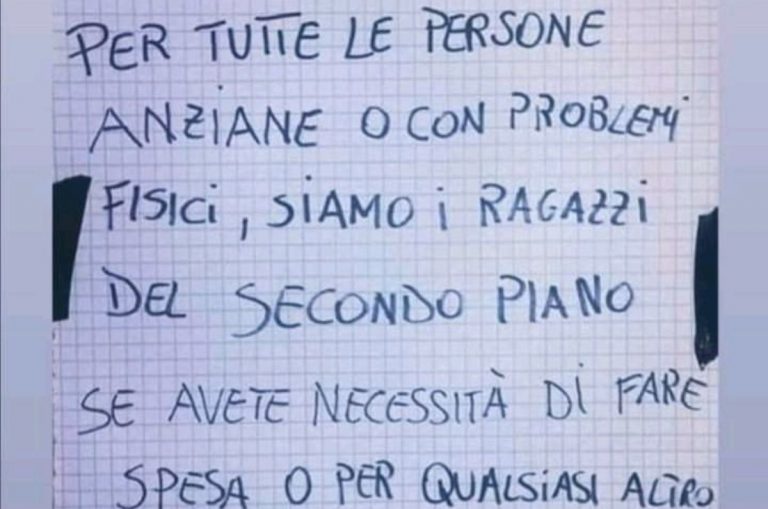 PER TUTTE LE PERSONE
ANZIANE O CON PROBLEMI
FISICI, SIAMO I RAGAZZI
DEL SECONDO PIANO
SE AVETE NECESSITÀ DI FARE
SPESA O PER QUALSIASI ALTRO